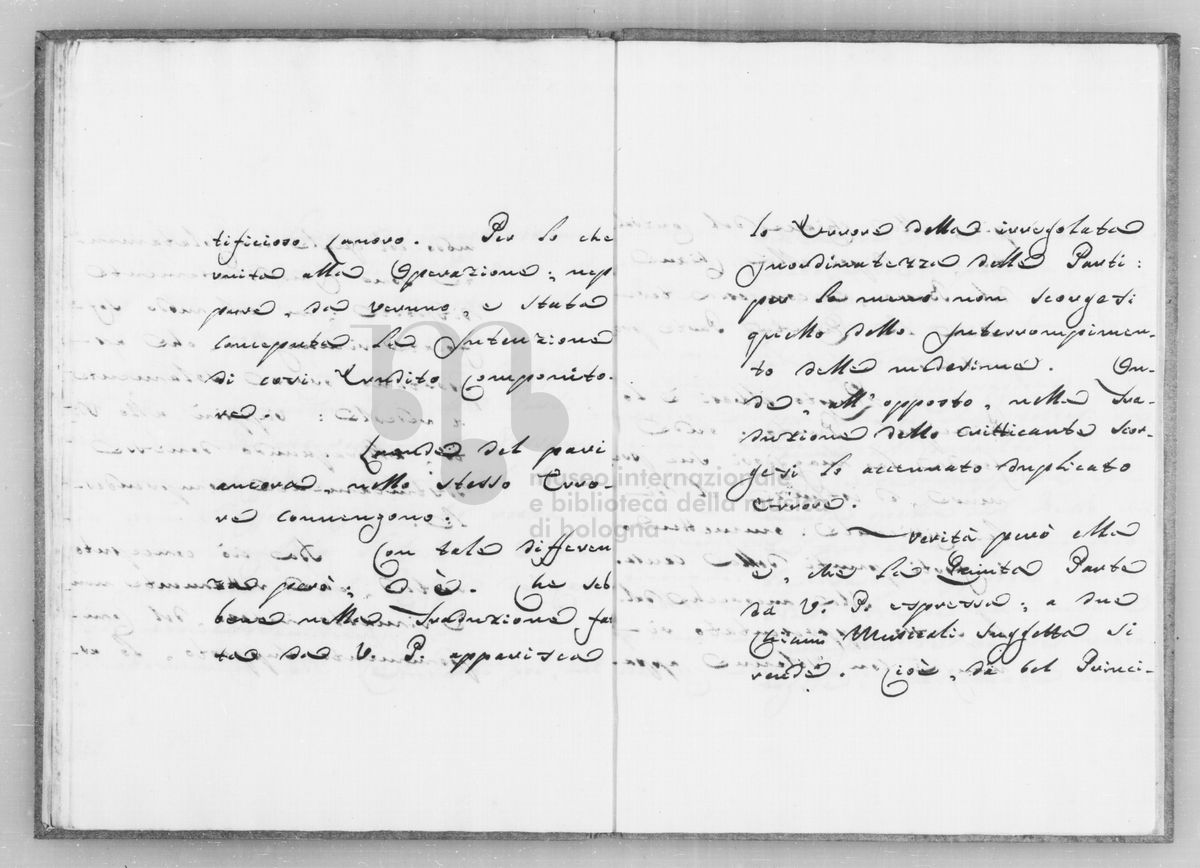 tificioso Lavoro. Per lo che
unita alla Operazione, nep
pure, da veruno, è stata
conceputa la Intenzione
di così Erudito Componito-
re.
Laonde del pari
ancora, nello stesso Erro-
re convengono:
Con tale differen
za però; ed è. Che seb
bene nella Traduzione fat
ta da V. P. apparisca
lo Errore della irregolata
Inordinatezza delle Parti:
per lo meno non scorgesi
quello dello Interrompimen-
to delle medesime. On-
de, all' opposto, nella Tra-
duzione dello Critticante scor-
gesi lo accennato duplicato
Errore.
Verità però ella
è, che la Quinta Parte
da V. P. espressa, a due
Esami Musicali suggetta si
rende. Cioè, da bel Princi-
museo internazionale
e biblioteca della musica
di bologna